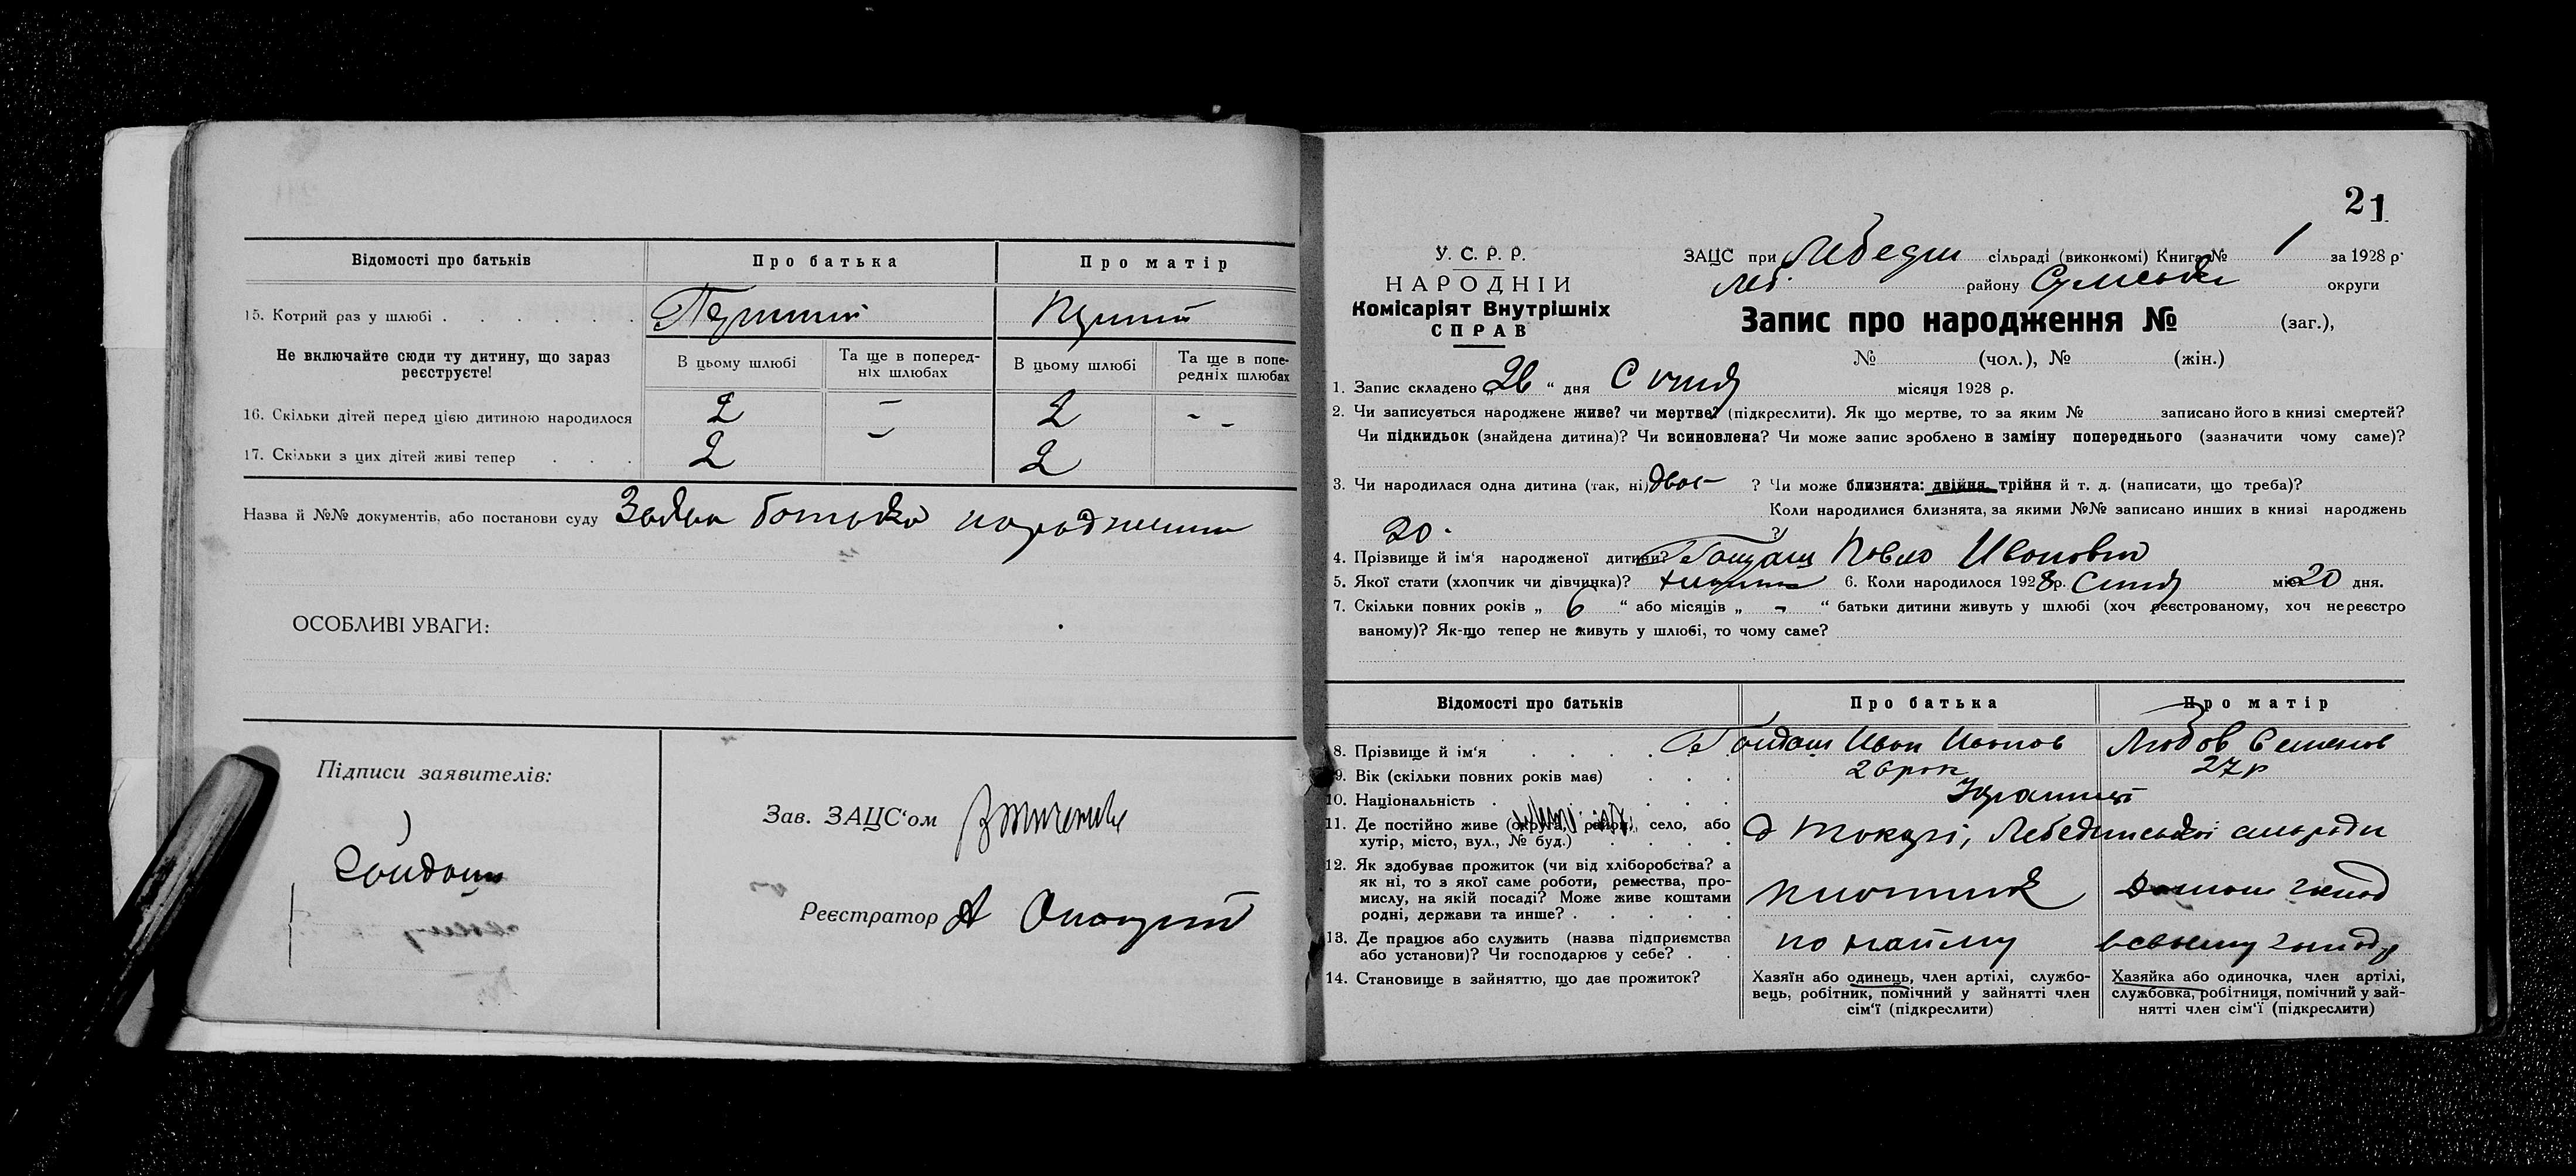 Відомості про батьків Про батька Про матір
15. Котрий раз у шлюбі Перший Перший
Не включайте сюди ту дитину, що зараз реєструєте!
В цьому шлюбі Та ще в поперед- В цьому шлюбі Та ще в попе-
ніх шлюбах редніх шлюбах
16. Скільки дітей перед цією дитиною народилося 2 – 2 -
17. Скільки з цих дітей живі тепер 2 – 2 -
Назва й №№ документів, або постанови суду Заява батька
ОСОБЛИВІ УВАГИ:
Підписи заявителів:
Гайдаш
Зав. ЗАЦС'ом
Реєстратор А
21
У. С. Р. Р.
НАРОДНІЙ
Комісаріят Внутрішніх
СПРАВ
ЗАЦС при Лебедин сільраді (виконкомі) Книга № 1 за 1928 р.
Леб. району Сумської округи
Запис про народження № (заг.),
№ (чол.), № (жін.)
1. Запис складено „26“ дня Січня місяця 1928 р.
2. Чи записується народжене живе? чи мертве? (підкреслити). Як що мертве, то за яким № записано його в книзі смертей?
Чи підкидьок (знайдена дитина)? Чи всиновлена? Чи може запис зроблено в заміну попереднього (зазначити чому саме)?
3. Чи народилася одна дитина (так, ні) двоє ? Чи може близнята: двійня, трійня й т. д. (написати, що треба)?
Коли народилися близнята, за якими №№ записано инших в книзі народжень
20. ?
4. Прізвище й ім'я народженої дитини? Гайдаш Павло Иванович
5. Якої стати (хлопчик чи дівчинка)? 6. Коли народилося 1928 р. Січня міс. 20 дня.
7. Скільки повних років „ 6 “ або місяців „ - “ батьки дитини живуть у шлюбі (хоч реєстрованому, хоч нереєстро
ваному)? Як-що тепер не живуть у шлюбі, то чому саме?
Відомості про батьків Про батька Про матір
8. Прізвище й ім'я Гайдаш Иван Любов Семенов
9. Вік (скільки повних років має) 26 рок 27 р
10. Національність
11. Де постійно живе (округа, район, село, або
хутір, місто, вул., № буд.) Токарі, Лебединської сільради
12. Як здобуває прожиток (чи від хліборобства? а
як ні, то з якої саме роботи, ремества, про-
мислу, на якій посаді? Може живе коштами
родні, держави та инше?
13. Де працює або служить (назва підприємства
або установи)? Чи господарює у себе? по найму в своєму
14. Становище в зайняттю, що дає прожиток?
Хазяїн або одинець, член артілі, службо-
вець, робітник, помічний у зайнятті член
сім'ї (підкреслити)
Хазяйка або одиночка, член артілі,
службовка, робітниця, помічний у зай-
нятті член сім'ї (підкреслити)